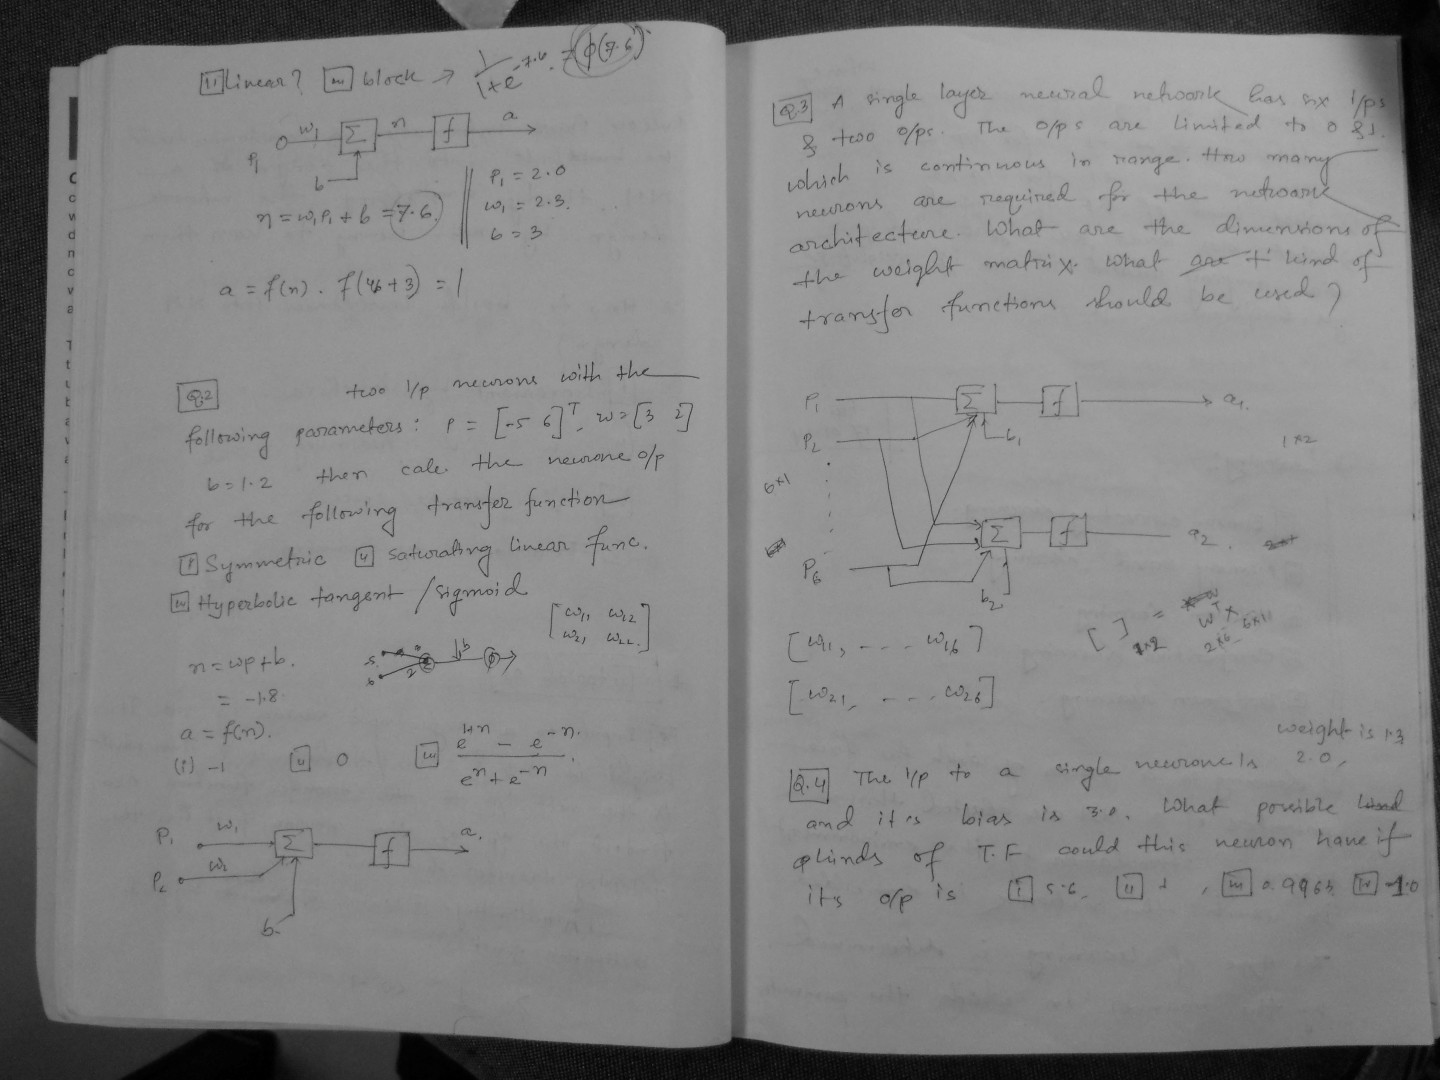 ii Linear? iii block → 1/1+e^-7.6 = φ(7.6)
P1 w1 Σ n f a
b
P1 = 2.0
w1 = 2.3.
b = 3
n = w1P1 + b = 7.6
a = f(n). f(4.6+3) = 1
Q.2 two i/p neurons with the
following parameters: P = [-5 6]^T, w = [3 2]
b = 1.2 then calc. the neurone o/p
for the following transfer function
i Symmetric ii saturating linear func.
iii Hyperbolic tangent / sigmoid
[w11 w12
w21 w22.]
n = wp+b.
= -1.8
-5 6 2 Σ b φ
a = f(n).
(i) -1 ii 0 iii e^n - e^-n. / e^n + e^-n.
P1 w1 Σ f a.
P2 w2
b.
Q.3 A single layer neural network has six i/ps
& two o/ps. The o/ps are limited to 0 & 1.
which is continuous in range. How many
neurons are required for the network
architecture. What are the dimensions of
the weight matrix. What are t kind of
transfer functions should be used?
P1 Σ f a1.
P2 b1 1*2
6*1
Σ f a2.
P6
b2.
[w11, - - - . w16] [ ] 1*2 = w^T x 2*6 6*1
[w21, - . . . w26]
weight is 1.3
Q.4 The i/p to a single neurone is 2.0,
and its bias is 3.0. What possible
kinds of T.F could this neuron have if
its o/p is i 5.6, ii 1, iii 0.9963 iv -1.0